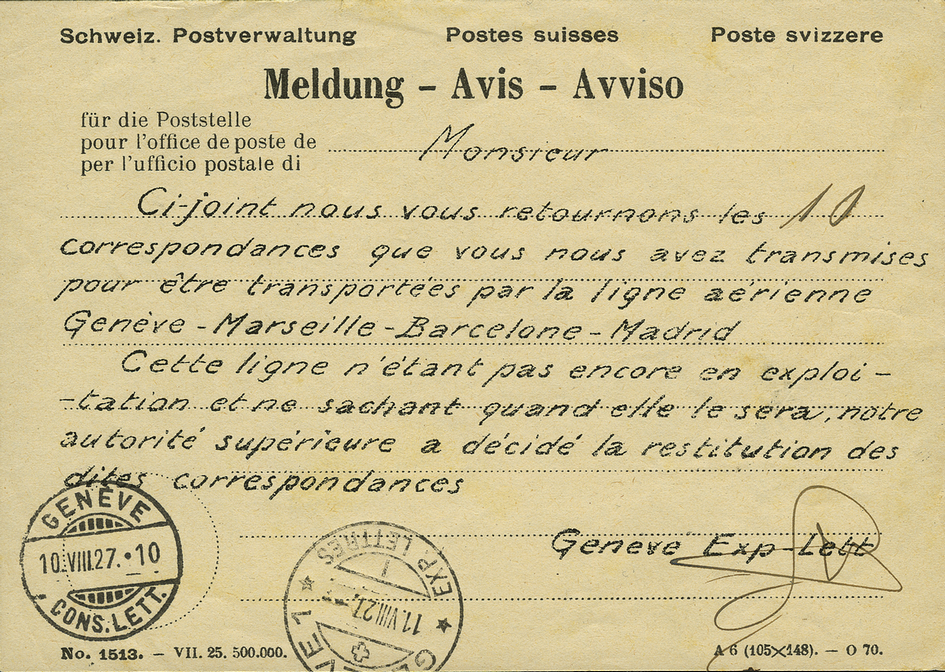 Schweiz. Postverwaltung Postes suisses Poste svizzere
Meldung – Avis – Avviso
für die Poststelle
pour l'office de poste de
per l'ufficio postale di
Monsieur
Ci-joint nous vous retournons les 10
correspondances que vous nous avez transmises
pour être transportées par la ligne aérienne
Genève - Marseille - Barcelone - Madrid
Cette ligne n'étant pas encore en exploi-
-tation et ne sachant quand elle le sera, notre
autorité supérieure a décidé la restitution des
dites correspondances
Genève Exp-Lett
GENÈVE
10.VIII.27.•10
CONS.LETT.
EXP. LETTRES
11.VIII.27.
No. 1513. – VII. 25. 500.000.
A 6 (105×148). – O 70.